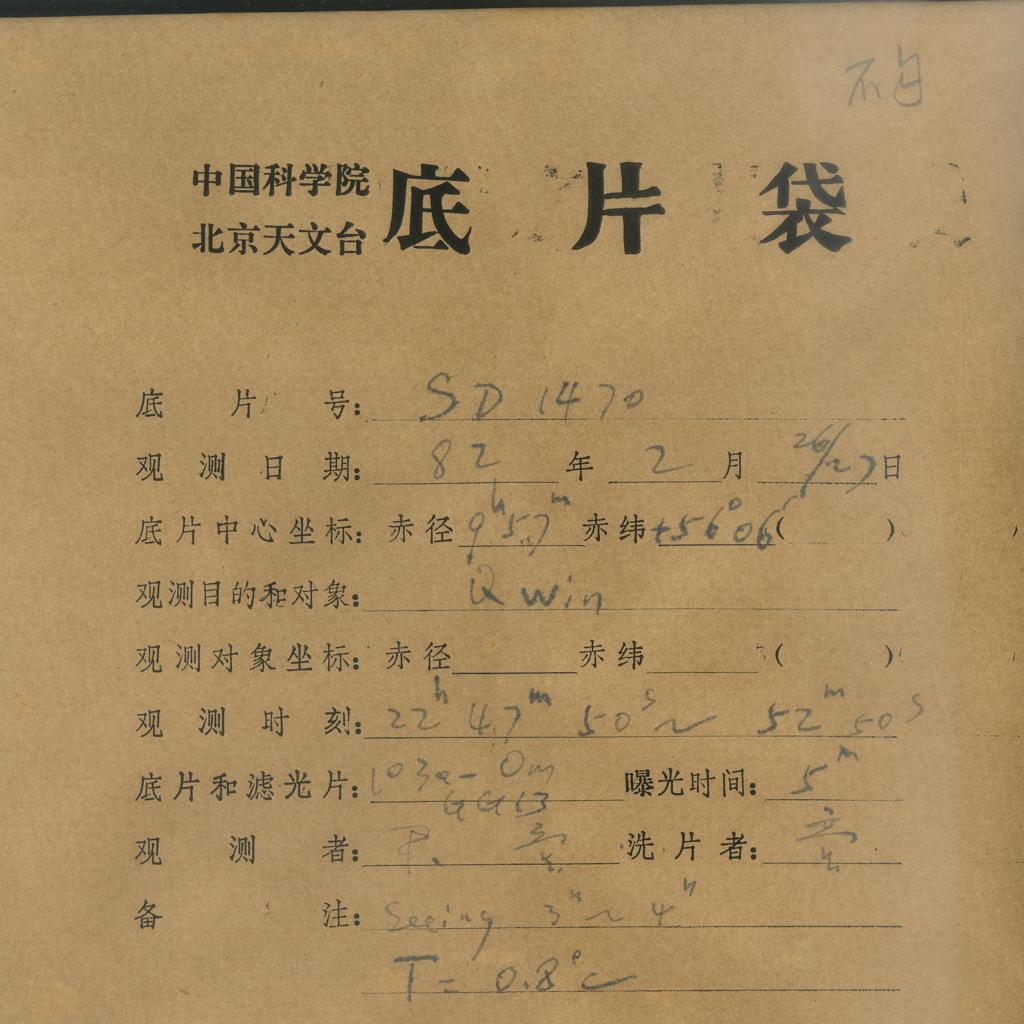 中国科学院
北京天文台
底片袋
底片号: SD 1470
观测日期: 82年2月26/27日
底片中心坐标: 赤径9h57m赤纬+56°06′( )
观测目的和对象: Q win
观测对象坐标: 赤径 赤纬 ( )
观测时刻: 22h 47m 50s ~ 52m 50s
底片和滤光片: 103a-Om 曝光时间: 5m
GG13
观测者: 洗片者:
备注: Seeing 3" ~ 4"
T= 0.8°c